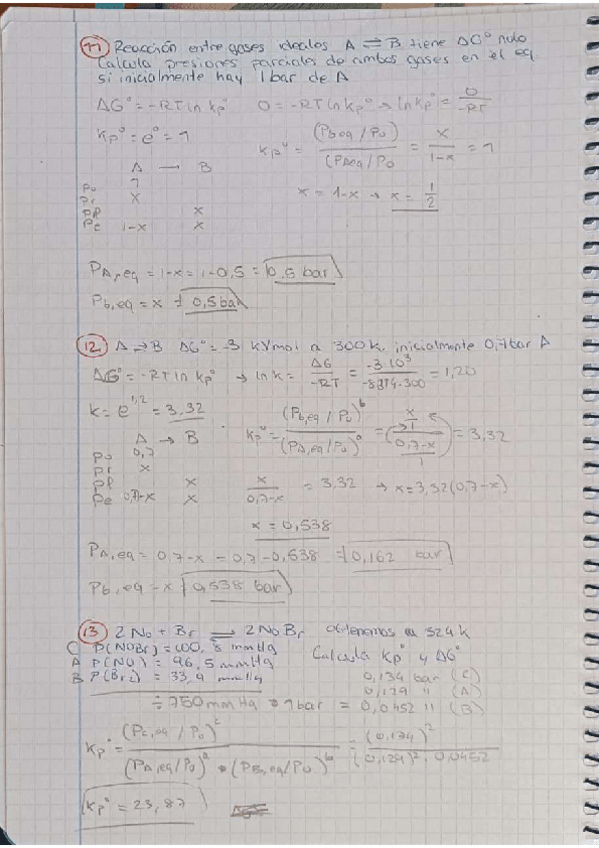 11) Reacción entre gases ideales A ⇌ B tiene ΔG° nulo
Calcula presiones parciales de ambos gases en el eq
si inicialmente hay 1bar de A
ΔG° = -RT ln Kp° 0 = -RT ln Kp° → ln Kp° = 0/-RT
Kp° = e° = 1 Kp° = (Pb eq / P0) / (PA eq / P0) = x / 1-x = 1
A → B
P0 1
Pr x
Pf x
Pe 1-x x
x = 1-x → x = 1/2
PA, eq = 1-x = 1-0,5 = 0,5 bar
Pb, eq = x = 0,5 bar
12) A → B ΔG° = -3 kJ/mol a 300 K. inicialmente 0,7 bar A
ΔG° = -RT ln Kp° → ln K = ΔG / -RT = -3·10³ / -8,314·300 = 1,20
K = e^1,2 = 3,32 Kp° = (Pb,eq / P0)^b / (PA,eq / P0)^a = (x/1) / (0,7-x/1) = 3,32
A → B
P0 0,7
Pr x
Pf x
Pe 0,7-x x
x / 0,7-x = 3,32 → x = 3,32(0,7-x)
x = 0,538
PA,eq = 0,7-x = 0,7-0,538 = 0,162 bar
Pb,eq = x = 0,538 bar
13) 2NO + Br ⇌ 2NOBr obtenemos a 324 K
C P(NOBr) = 100,8 mmHg Calcula Kp° y ΔG°
A P(NO) = 96,5 mmHg 0,134 bar (C)
B P(Br2) = 33,9 mmHg 0,129 " (A)
÷ 750 mmHg → 1 bar = 0,0452 " (B)
Kp° = (Pc,eq / P0)^c / (PA,eq/P0)^a · (PB,eq/P0)^b = (0,134)² / (0,129)² · 0,0452
Kp° = 23,87